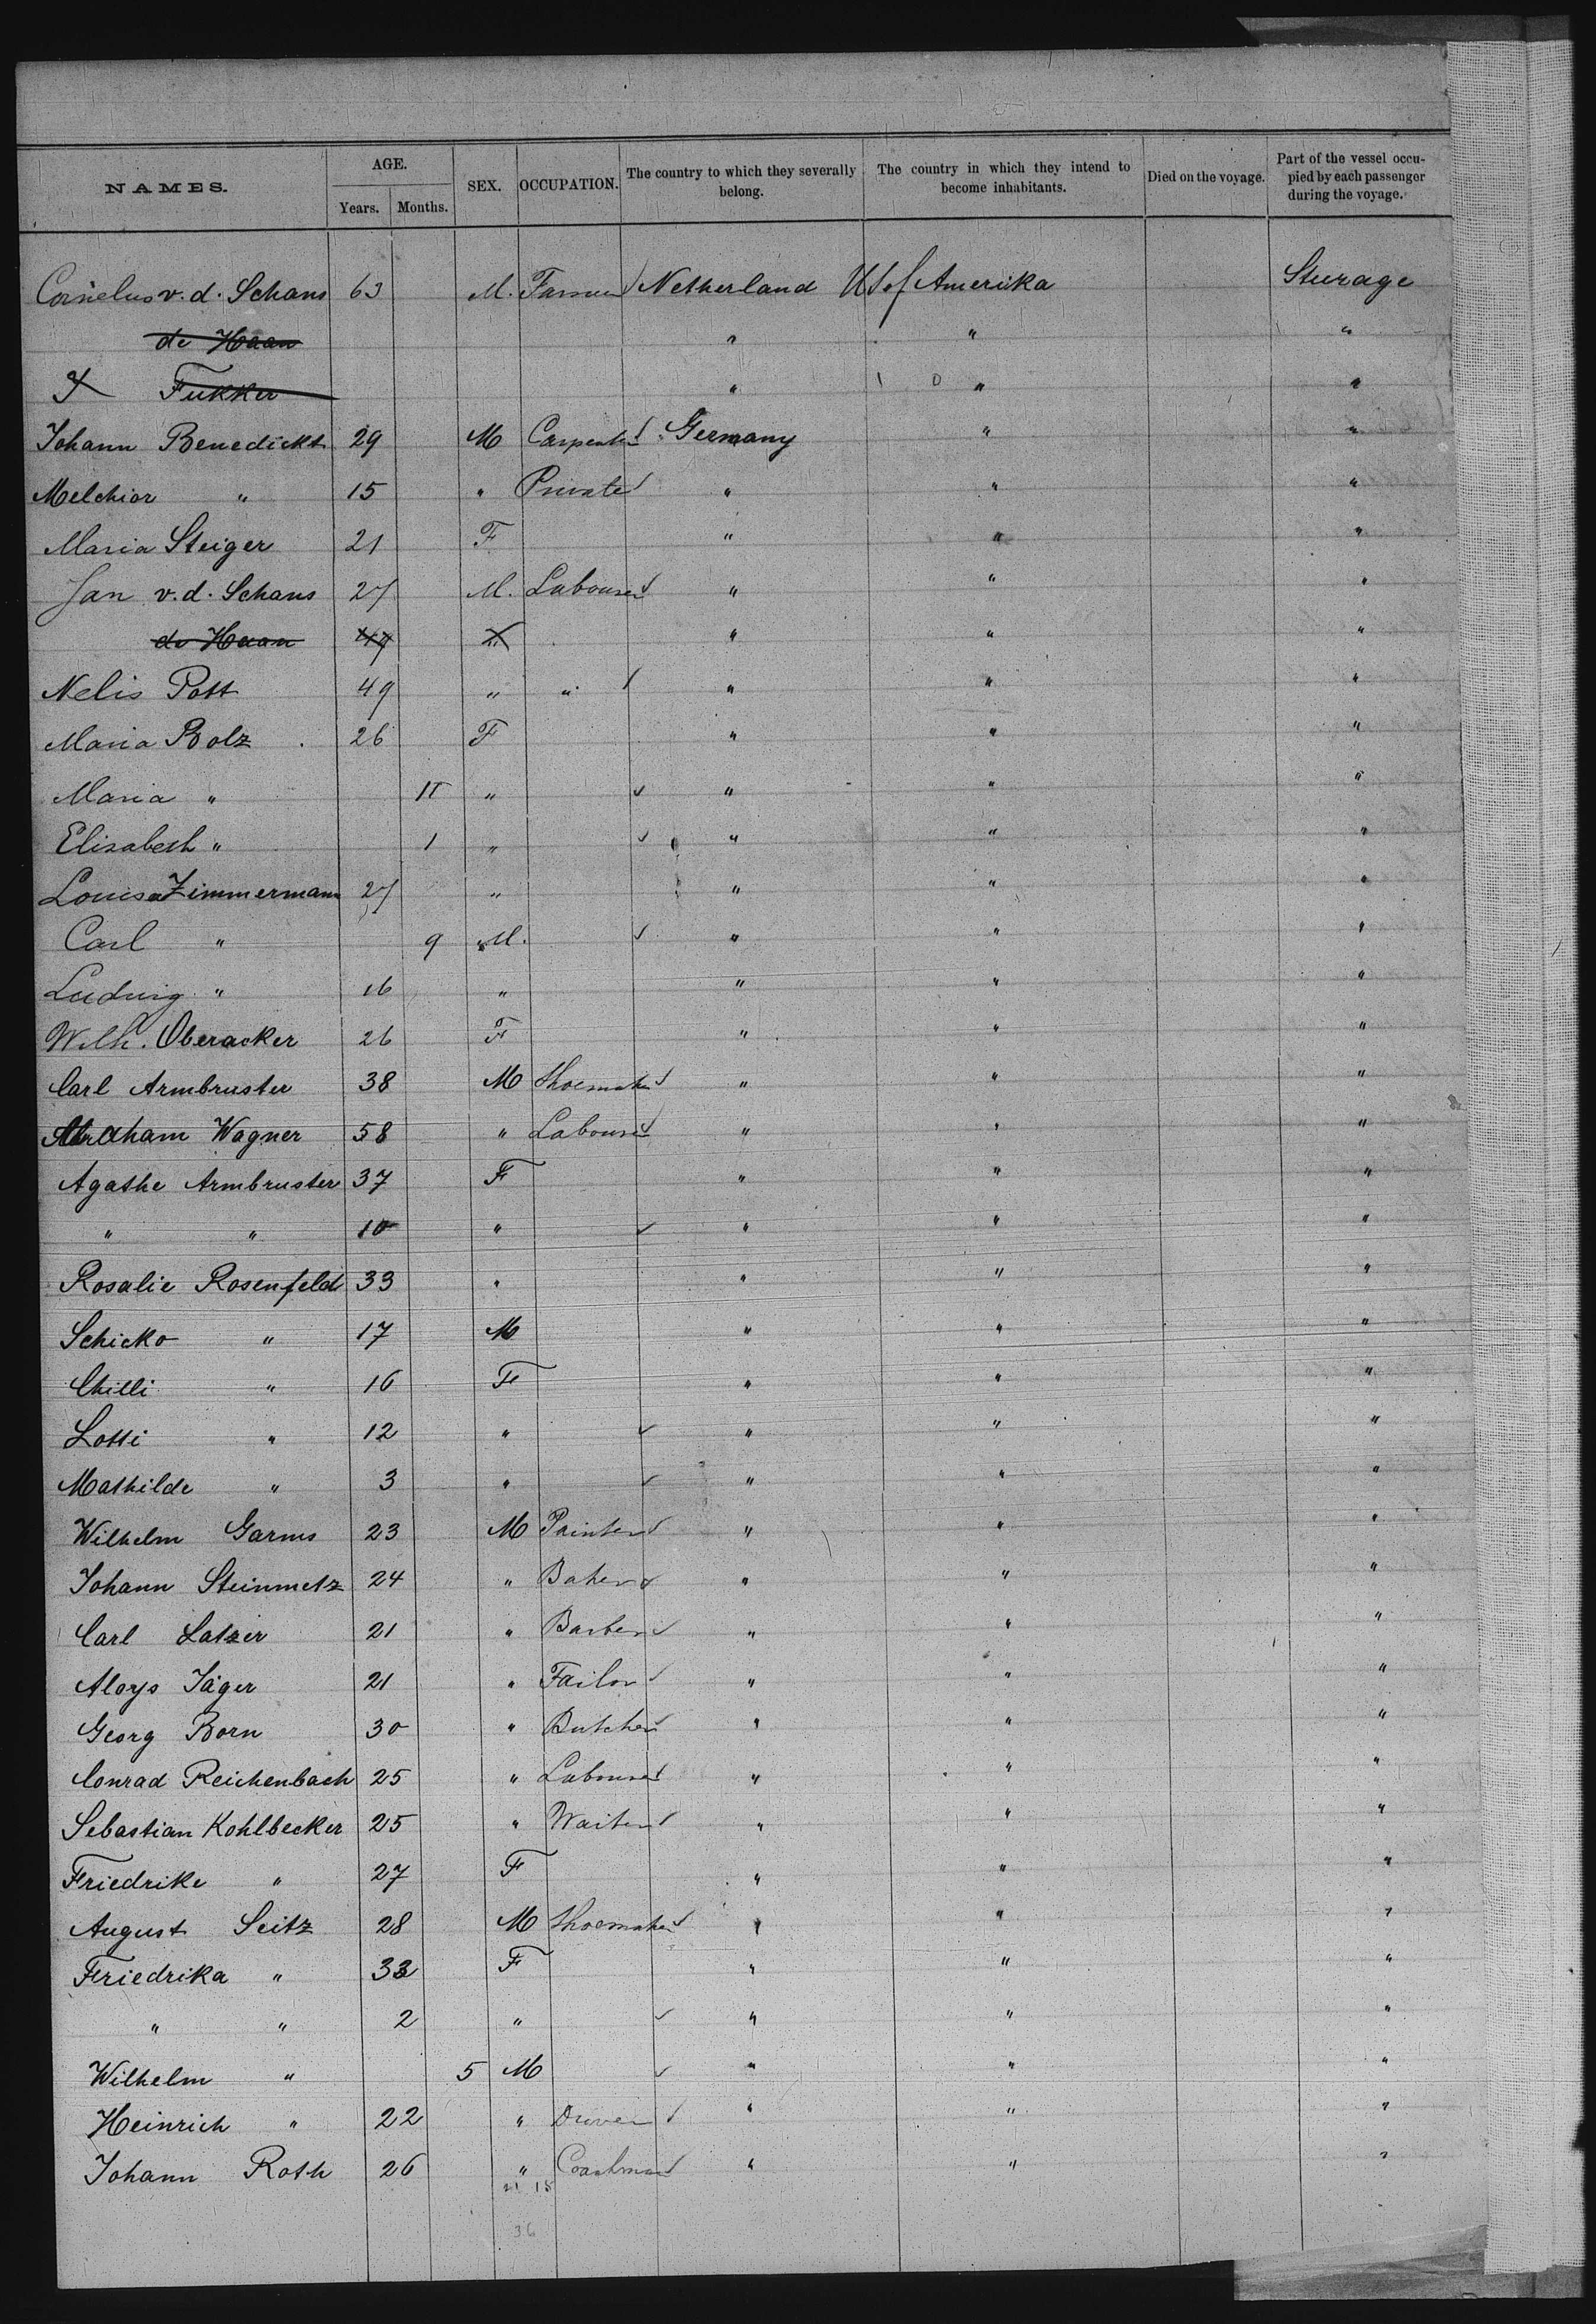 NAMES. AGE. Years. Months. SEX. OCCUPATION. The country to which they severally belong. The country in which they intend to become inhabitants. Died on the voyage. Part of the vessel occupied by each passenger during the voyage.
Cornelus v. d. Schans 63 M. Farmer Netherland US of Amerika Sturage
de Haan " " "
Fukker " " "
Johann Benedickt 29 M Carpenter Germany " "
Melchior " 15 " Private " " "
Maria Steiger 21 F " " "
Jan v. d. Schans 27 M. Labourer " " "
de Haan 47 " " "
Nelis Pott 49 " " " " "
Maria Bolz 26 F " " "
Maria " 11 " " " "
Elisabeth " 1 " " " "
Louisa Zimmermann 27 " " " "
Carl " 9 M. " " "
Ludwig " 16 " " " "
Wilh. Oberacker 26 F " " "
Carl Armbruster 38 M Shoemaker " " "
Abraham Wagner 58 " Labourer " " "
Agathe Armbruster 37 F " " "
" " 10 " " " "
Rosalie Rosenfeld 33 " " " "
Schicko " 17 M " " "
Chilli " 16 F " " "
Lotti " 12 " " " "
Mathilde " 3 " " " "
Wilhelm Garms 23 M Painter " " "
Johann Steinmetz 24 " Baker " " "
Carl Latzer 21 " Barber " " "
Aloys Jäger 21 " Tailor " " "
Georg Born 30 " Butcher " " "
Conrad Reichenbach 25 " Labourer " " "
Sebastian Kohlbecker 25 " Waiter " " "
Friedrike " 27 F " " "
August Seitz 28 M Shoemaker " " "
Friedrika " 33 F " " "
" " 2 " " " "
Wilhelm " 5 M " " "
Heinrich " 22 " Driver " " "
Johann Roth 26 " Coachman " " "
21 15
36